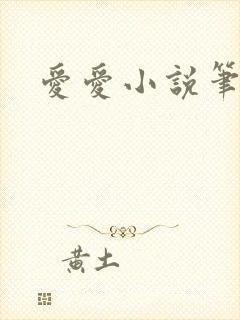 愛愛小說筆
黃土